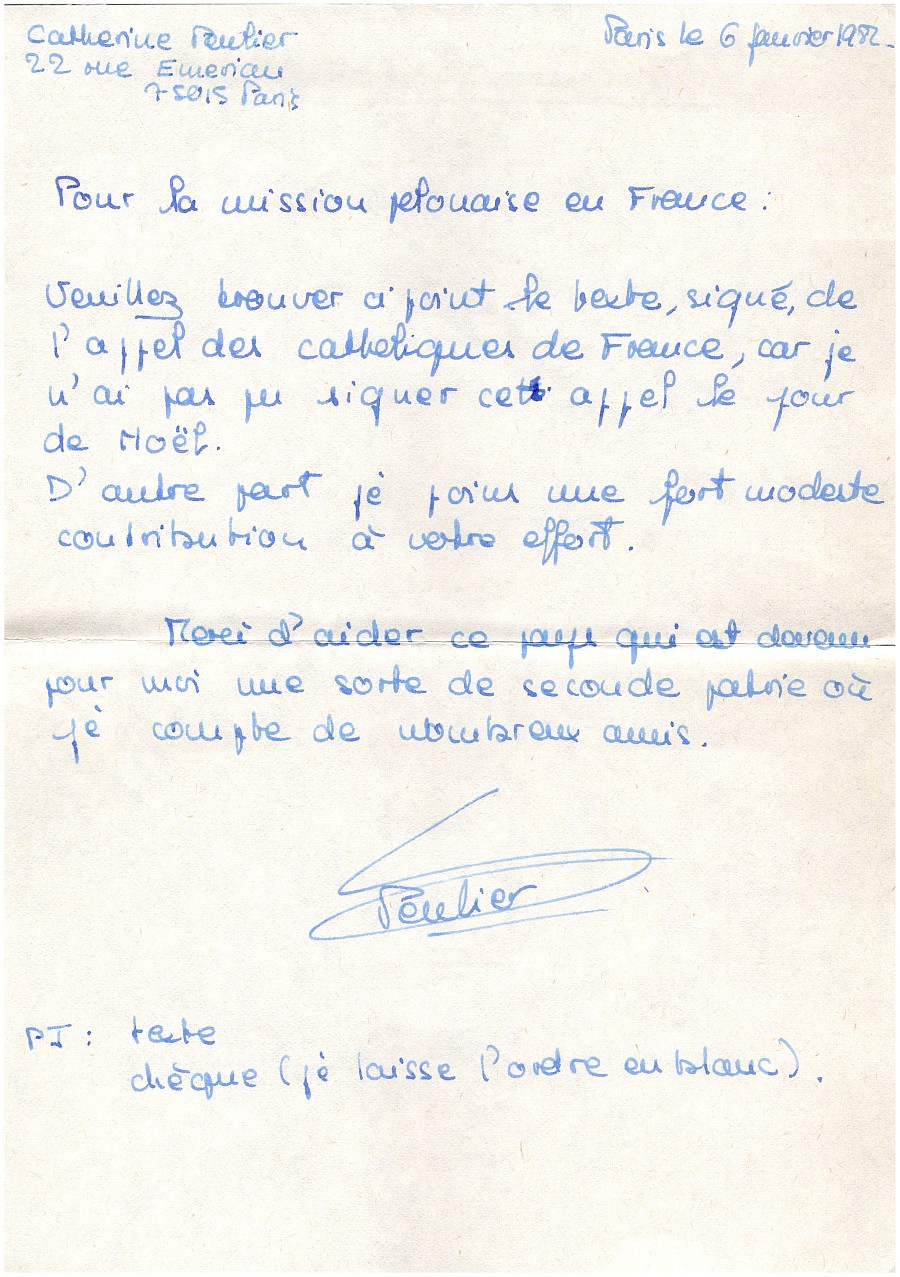 Catherine Paulier
22 rue Emeriau
75015 Paris
Paris le 6 janvier 1982.
Pour la mission polonaise en France :
Veuillez trouver ci joint le texte, signé, de
l'appel des catholiques de France, car je
n'ai pas pu signer cet appel le jour
de Noël.
D'autre part je joins une fort modeste
contribution à votre effort.
Merci d'aider ce pays qui est devenu
pour moi une sorte de seconde patrie où
je compte de nombreux amis.
PJ : texte
chèque (je laisse l'ordre en blanc).